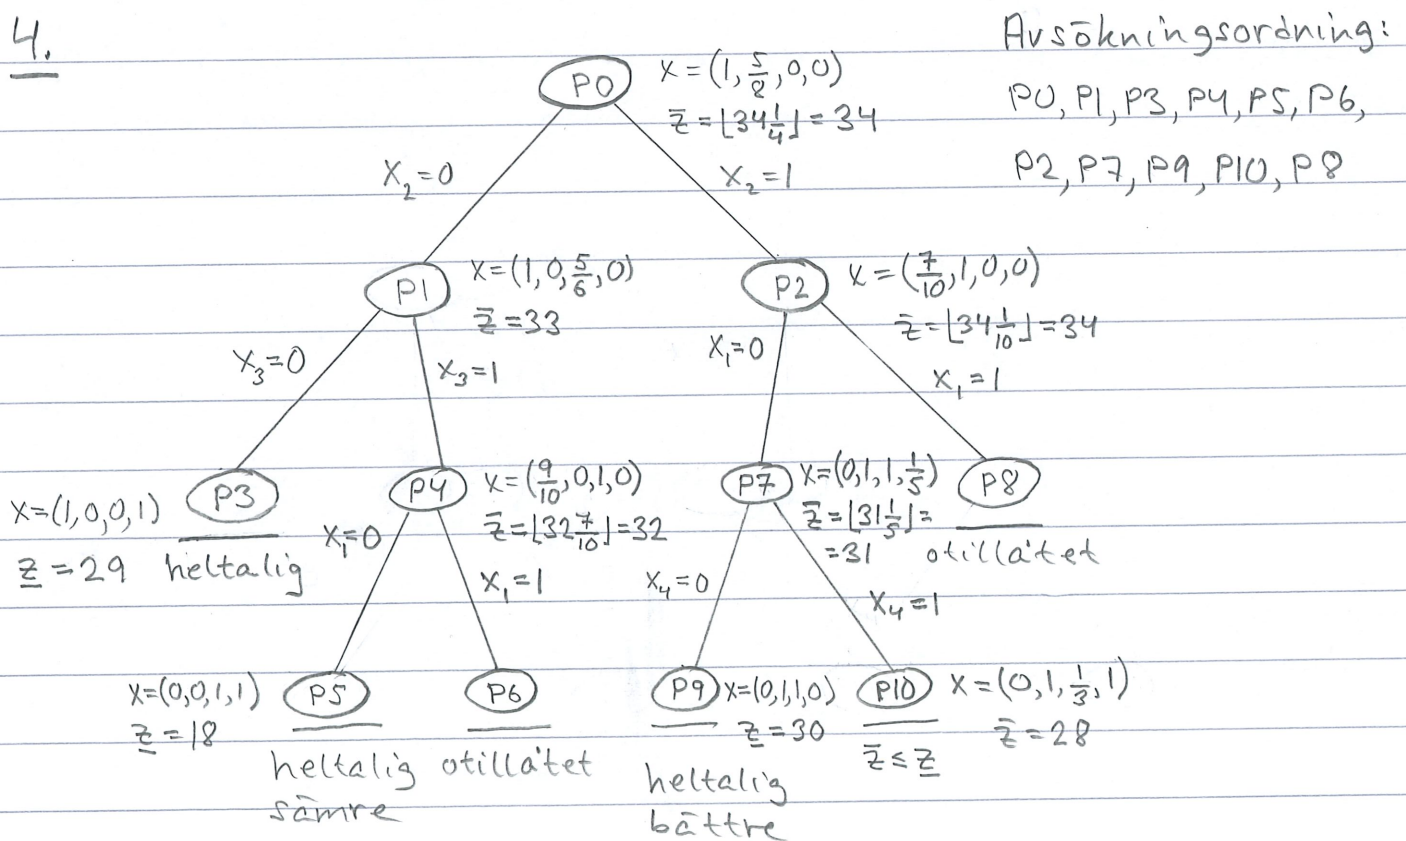 4.
Avsökningsordning:
P0, P1, P3, P4, P5, P6,
P2, P7, P9, P10, P8
P0
x=(1,5/8,0,0)
z̄=⌊34 1/4⌋=34
x₂=0
x₂=1
P1
x=(1,0,5/6,0)
z̄=33
P2
x=(7/10,1,0,0)
z̄=⌊34 1/10⌋=34
x₃=0
x₃=1
x₁=0
x₁=1
x=(1,0,0,1)
z̲=29
P3
heltalig
P4
x=(9/10,0,1,0)
z̄=⌊32 7/10⌋=32
P7
x=(0,1,1,1/5)
z̄=⌊31 1/5⌋=
=31
P8
otillåtet
x₁=0
x₁=1
x₄=0
x₄=1
x=(0,0,1,1)
z̲=18
P5
heltalig
sämre
P6
otillåtet
P9
x=(0,1,1,0)
z̲=30
heltalig
bättre
P10
z̄≤z̲
x=(0,1,1/3,1)
z̄=28